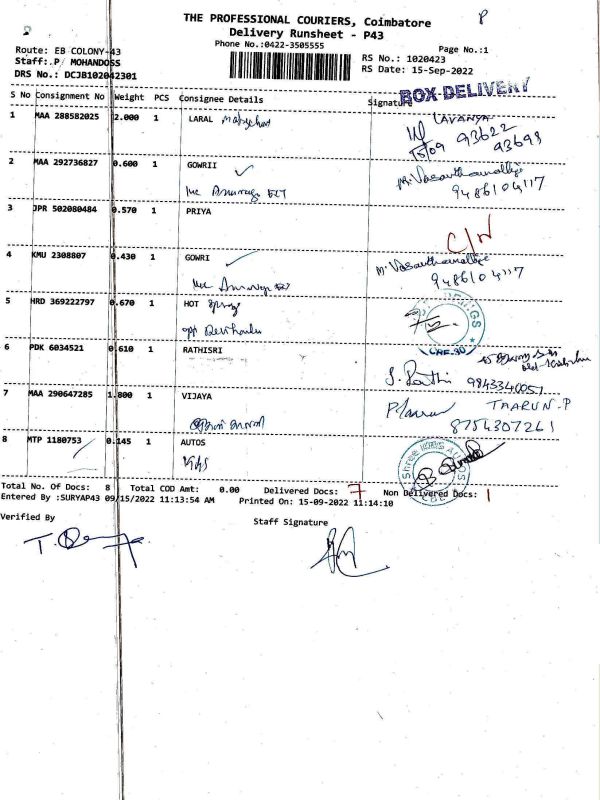 P
THE PROFESSIONAL COURIERS, Coimbatore
Delivery Runsheet - P43
Phone No.:0422-3505555
Page No.:1
Route: EB COLONY-43
Staff:.P/ MOHANDOSS
DRS No.: DCJB102042301
RS No.: 1020423
RS Date: 15-Sep-2022
BOX DELIVERY
S No Consignment No Weight PCS Consignee Details Signature
1 MAA 288582025 2.000 1 LARAL
LAVANYA
15/09 93622
93693
2 MAA 292736827 0.600 1 GOWRII
9486104117
3 JPR 502080484 0.570 1 PRIYA
C/N
4 KMU 2308807 0.430 1 GOWRI
9486104117
5 HRD 369222797 0.670 1 HOT
opp
6 PDK 6034521 0.610 1 RATHISRI
S. Rathi 9843340051
7 MAA 290647285 1.800 1 VIJAYA
TAARUN.P
8754307261
8 MTP 1180753 0.145 1 AUTOS
Total No. Of Docs: 8 Total COD Amt: 0.00 Delivered Docs: 7 Non Delivered Docs: 1
Entered By :SURYAP43 09/15/2022 11:13:54 AM Printed On: 15-09-2022 11:14:10
Verified By
Staff Signature